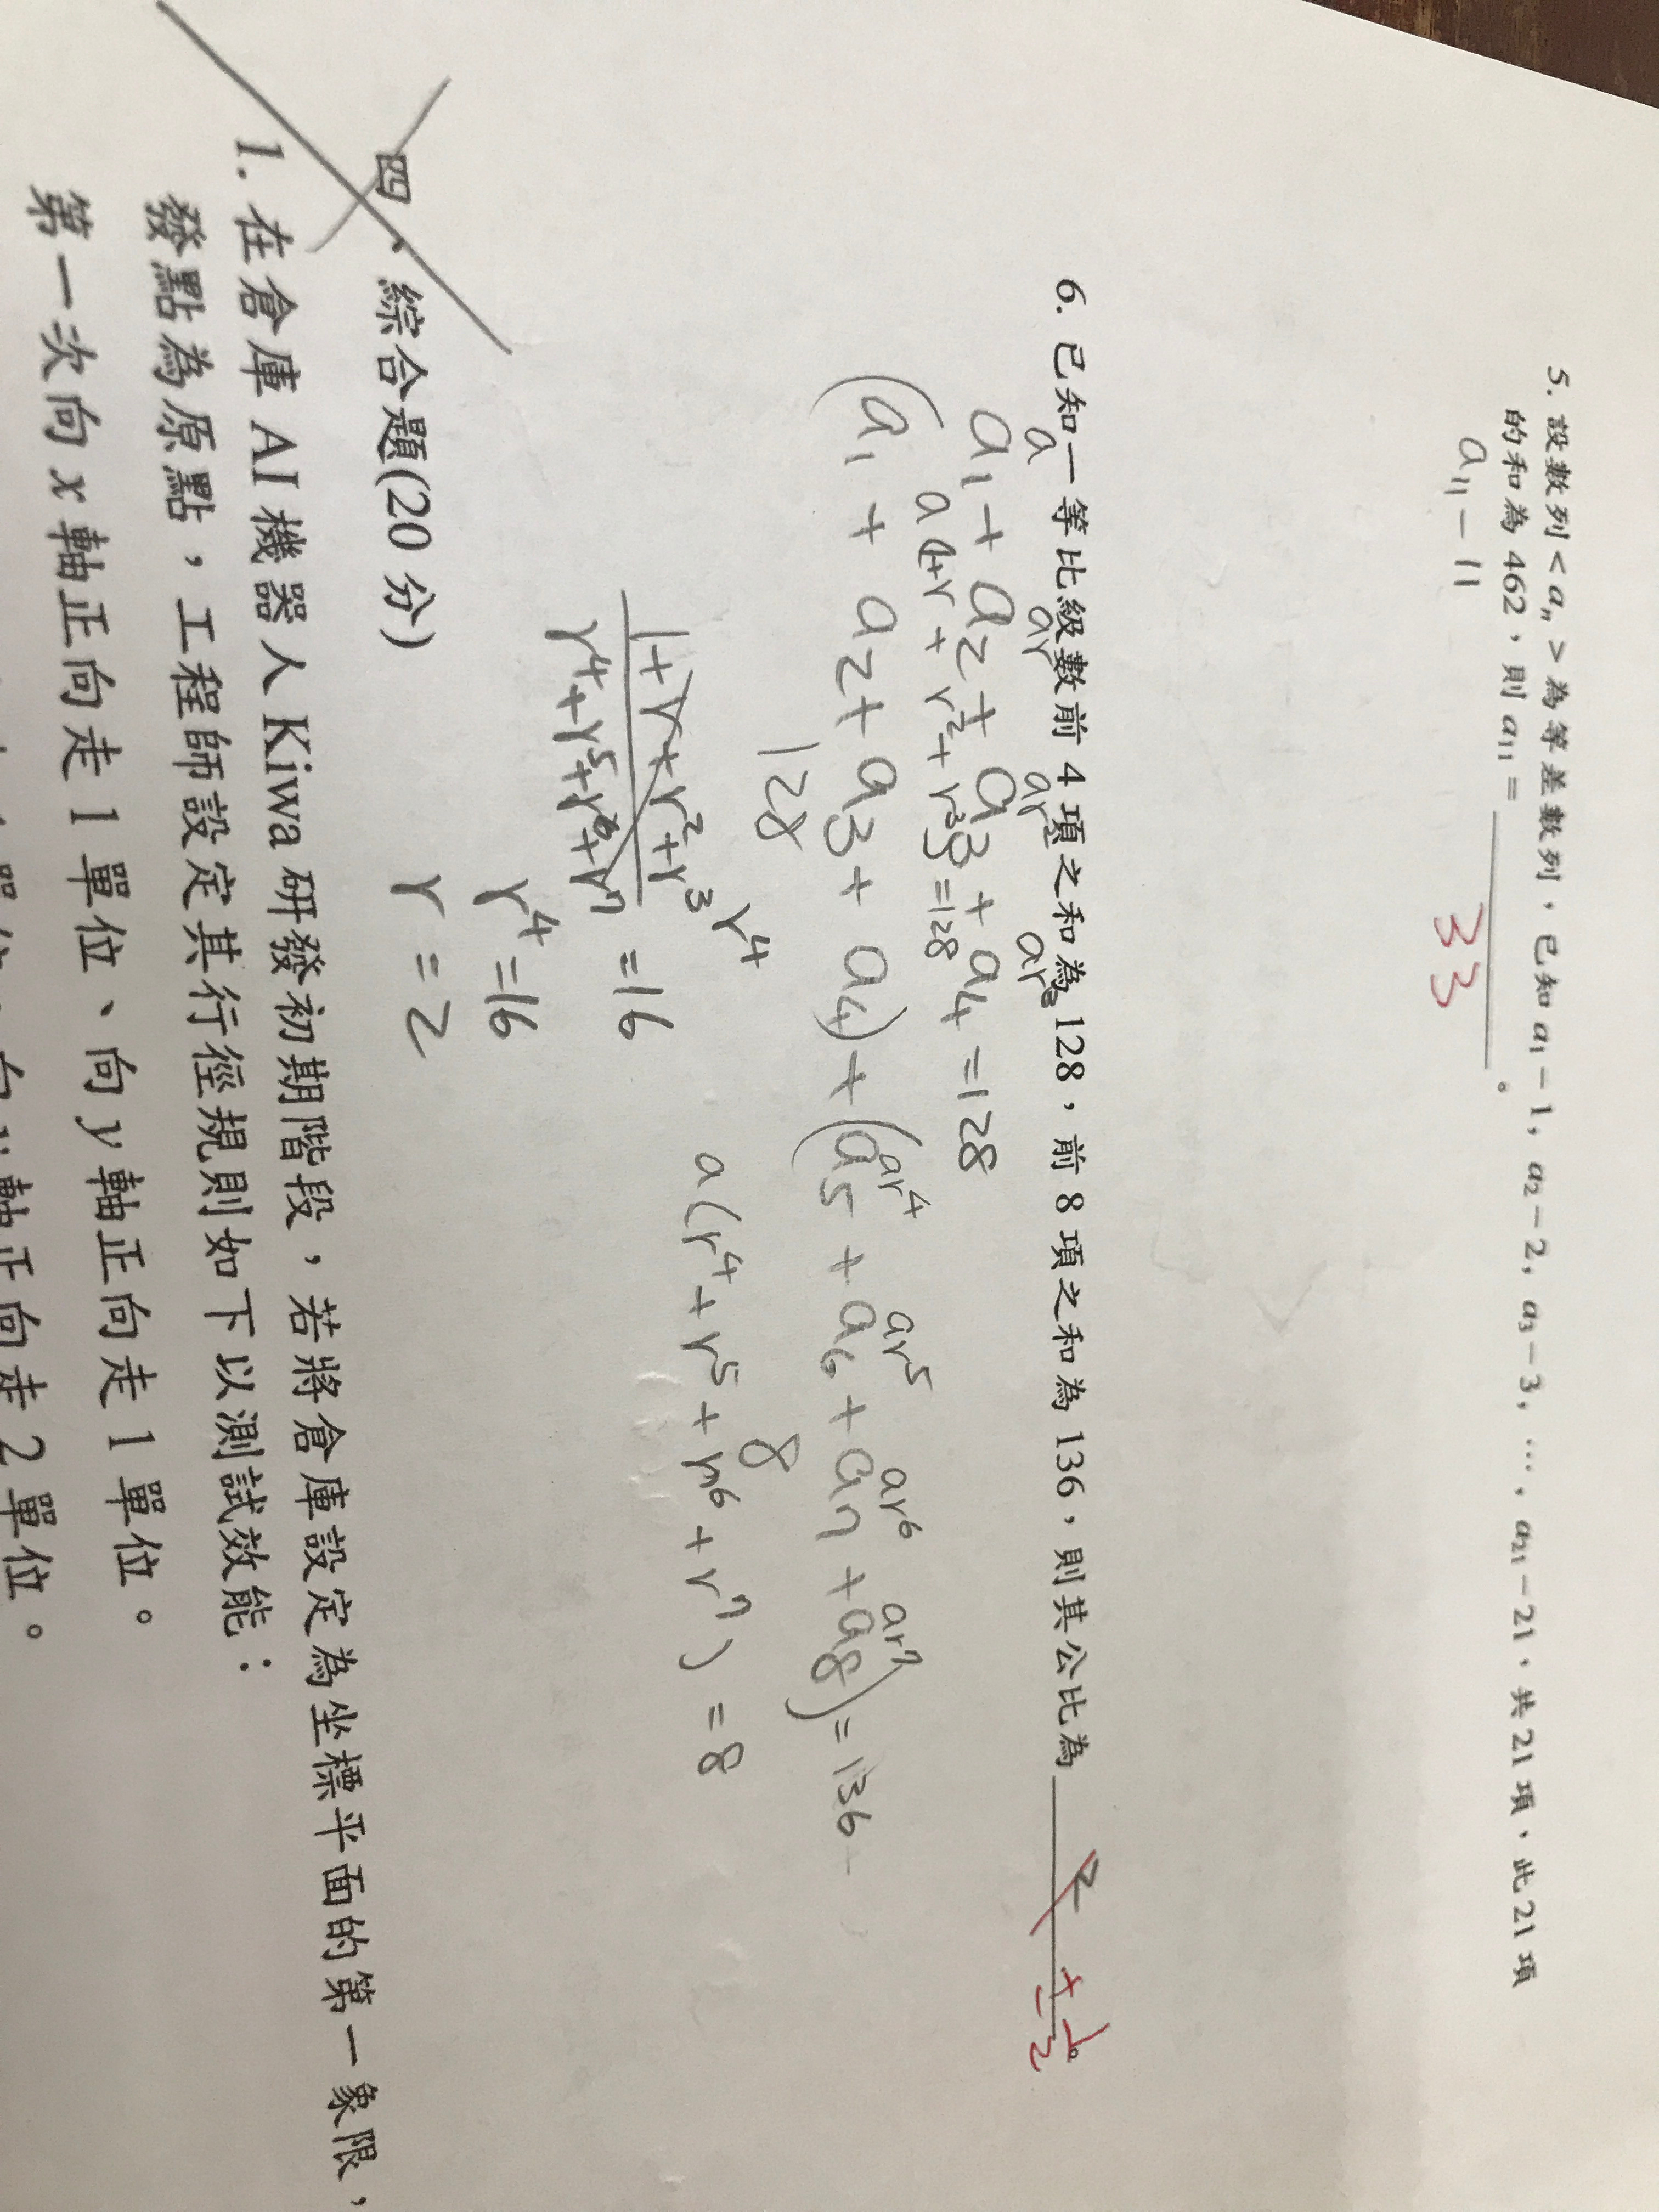 5. 設數列<aₙ>為等差數列，已知 a₁−1, a₂−2, a₃−3, …, a₂₁−21，共21項，此21項
的和為462，則 a₁₁= ________。
a₁₁−11
33
6. 已知一等比級數前4項之和為128，前8項之和為136，則其公比為 ________。
2
±1/2
a ar ar² ar³
a₁+a₂+a₃+a₄=128
r+r²+r³=128
ar⁴ ar⁵ ar⁶ ar⁷
(a₁+a₂+a₃+a₄)+(a₅+a₆+a₇+a₈)=136
128 8
a(r⁴+r⁵+r⁶+r⁷)=8
r⁴
1+r+r²+r³
r⁴+r⁵+r⁶+r⁷ =16
r⁴=16
r=2
四、綜合題(20分)
1. 在倉庫AI機器人Kiwa研發初期階段，若將倉庫設定為坐標平面的第一象限，
發點為原點，工程師設定其行徑規則如下以測試效能：
第一次向x軸正向走1單位、向y軸正向走1單位。
軸正向走2單位。